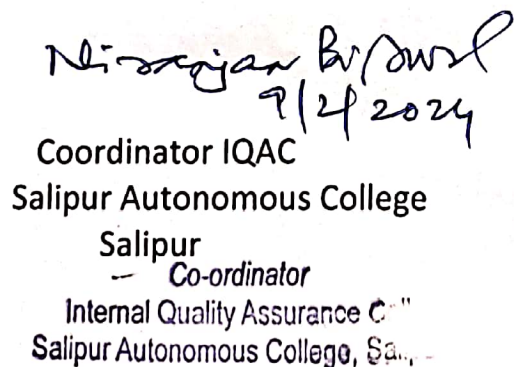 Niranjan Biswal
9/2/2024
Coordinator IQAC
Salipur Autonomous College
Salipur
Co-ordinator
Internal Quality Assurance
Salipur Autonomous College,